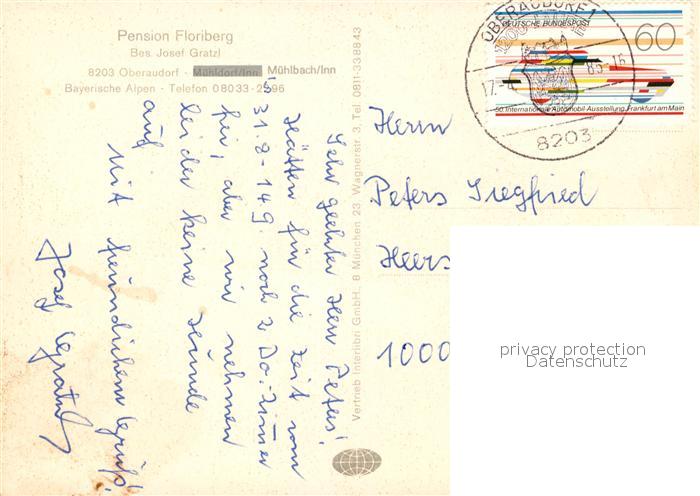 Pension Floriberg
Bes. Josef Gratzl
8203 Oberaudorf - Mühldorf/Inn Mühlbach/Inn
Bayerische Alpen - Telefon 08033-2596
Sehr geehrter Herr Peters!
Hätten für die Zeit vom
31.8-14.9. noch 2 Do.-Zimmer
frei, aber wir nehmen
leider keine Hunde
auf.
Mit freundlichem Gruß!
Josef Gratzl
Vertrieb Interlibri GmbH., 8 München 23, Wagnerstr. 3, Tel. 0811-338843
OBERAUDORF 1
8203
DEUTSCHE BUNDESPOST
60
50. Internationale Automobil-Ausstellung, Frankfurt am Main
Herrn
Peters Siegfried
Heers
1000
privacy protection
Datenschutz